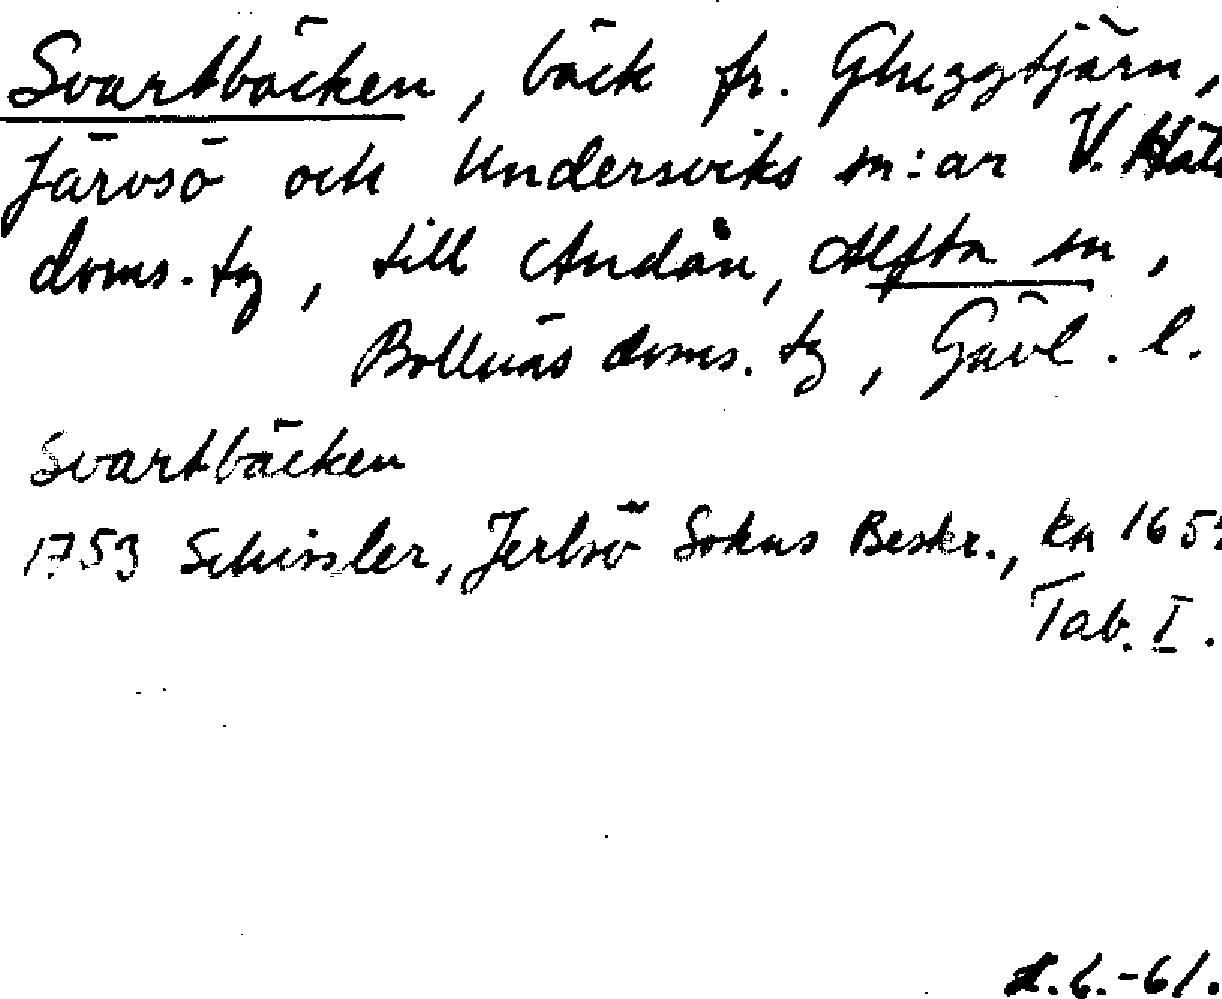 Svartbäcken, bäck fr. Gluggtjärn,
Järvsö och Undersviks sn:ar V. Häls
doms. tg, till Andån, Alfta sn,
Bollnäs doms. tg, Gävl. l.
Svartbäcken
1753 Schissler, Jerbsö Sokns Beskr., kn 165
Tab. I.
.6.-61.